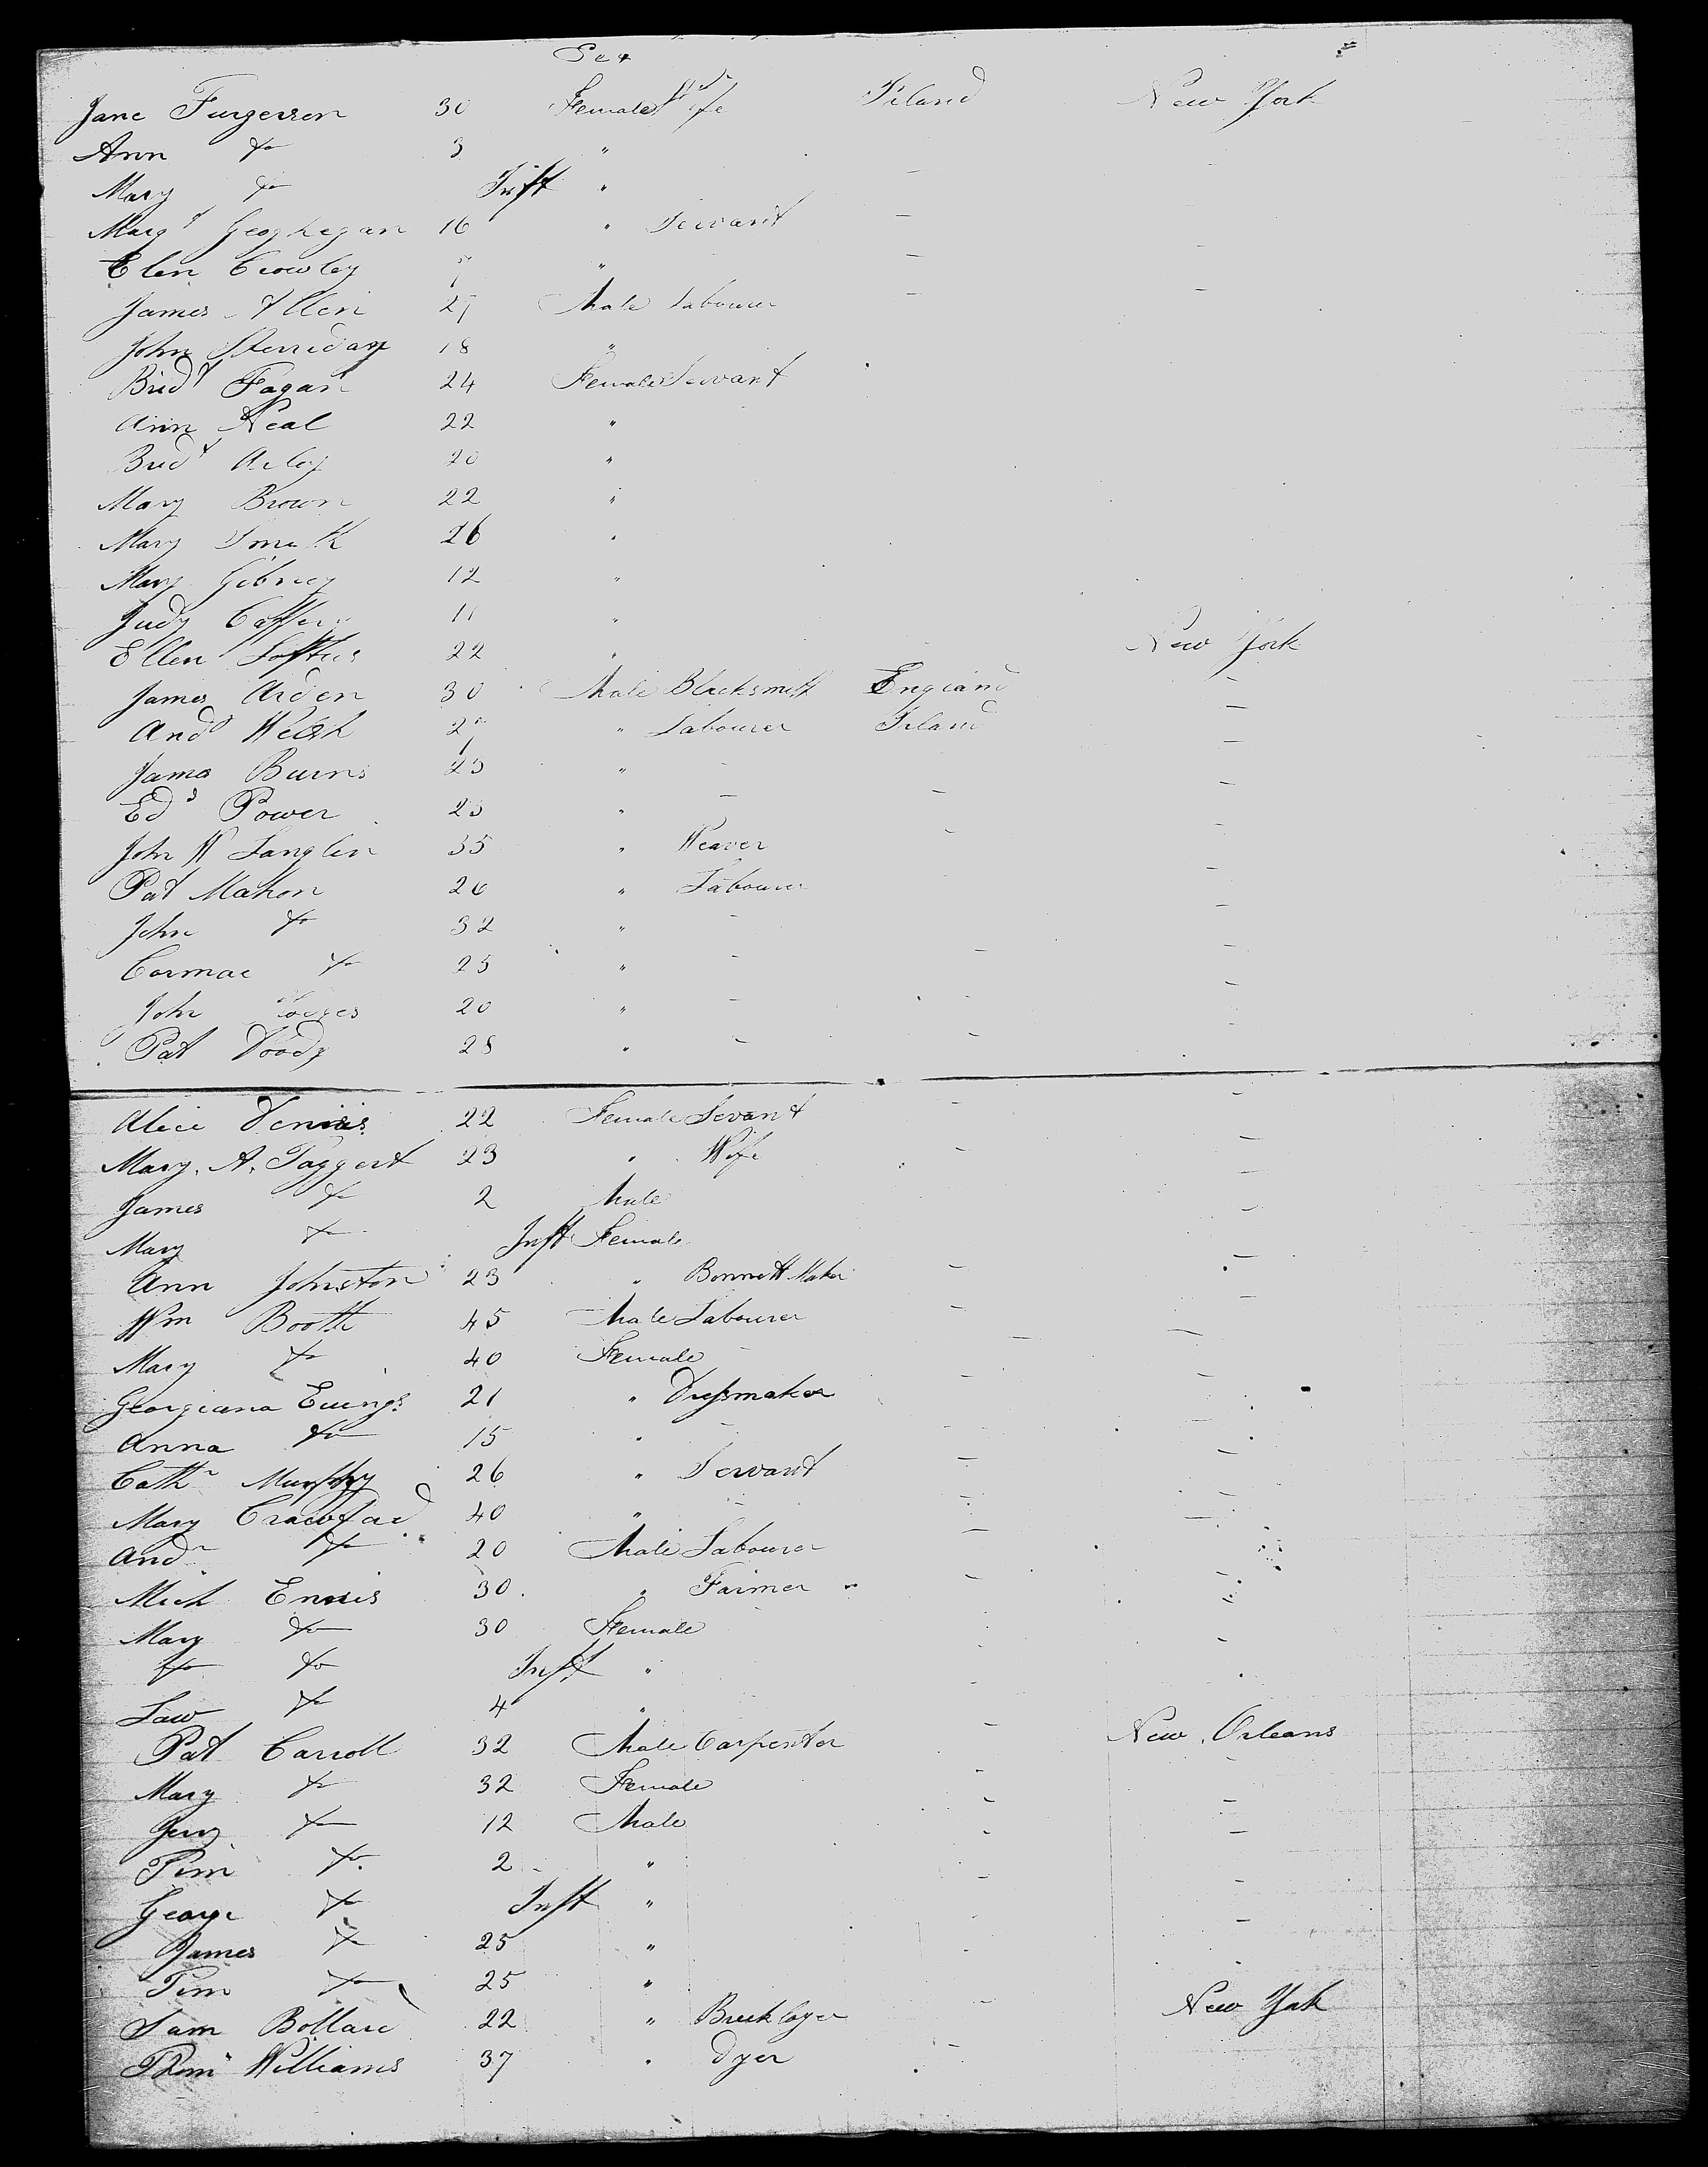 Sex
Jane Furgerson 30 Female Wife Ireland New York
Ann do 3 "
Mary do Inft "
Margt Geoghegan 16 " Servant
Elen Crowley 7 "
James Allen 27 Male Labourer
John Sherridan 18 "
Bridt Fagan 24 Female Servant
Ann Neal 22 "
Bridt 20 "
Mary Brown 22 "
Mary Smith 26 "
Mary Gibney 12 "
Judy 11 "
Ellen Loftus 22 " New York
James Arden 30 Male Blacksmith England
Andw Welsh 27 " Labourer Ireland
James Burns 25 "
Edd Power 23 "
John 35 " Weaver
Pat Mahon 26 " Labourer
John do 32 "
Cormac do 25 "
John 20 "
Pat Doody 28 "
Alice Dennis 22 Female Servant
Mary. A. Taggert 23 " Wife
James do 2 Male
Mary do Inft Female
Ann Johnston 23 " Bonnett Maker
Wm Booth 45 Male Labourer
Mary do 40 Female
Georgiana Ewings 21 " Dressmaker
Anna do 15 "
Cathn Murphy 26 " Servant
Mary Crawford 40 "
Andw do 20 Male Labourer
Mich Ennis 30 " Farmer
Mary do 30 Female
do do Inft "
Law do 4 "
Pat Carroll 32 Male Carpenter New Orleans
Mary do 32 Female
Jerry do 12 Male
Tim do 2 "
George do Inft "
James do 25 "
Tim do 25 "
Sam Bollard 22 " Bricklayer New York
Thom Williams 37 " Dyer